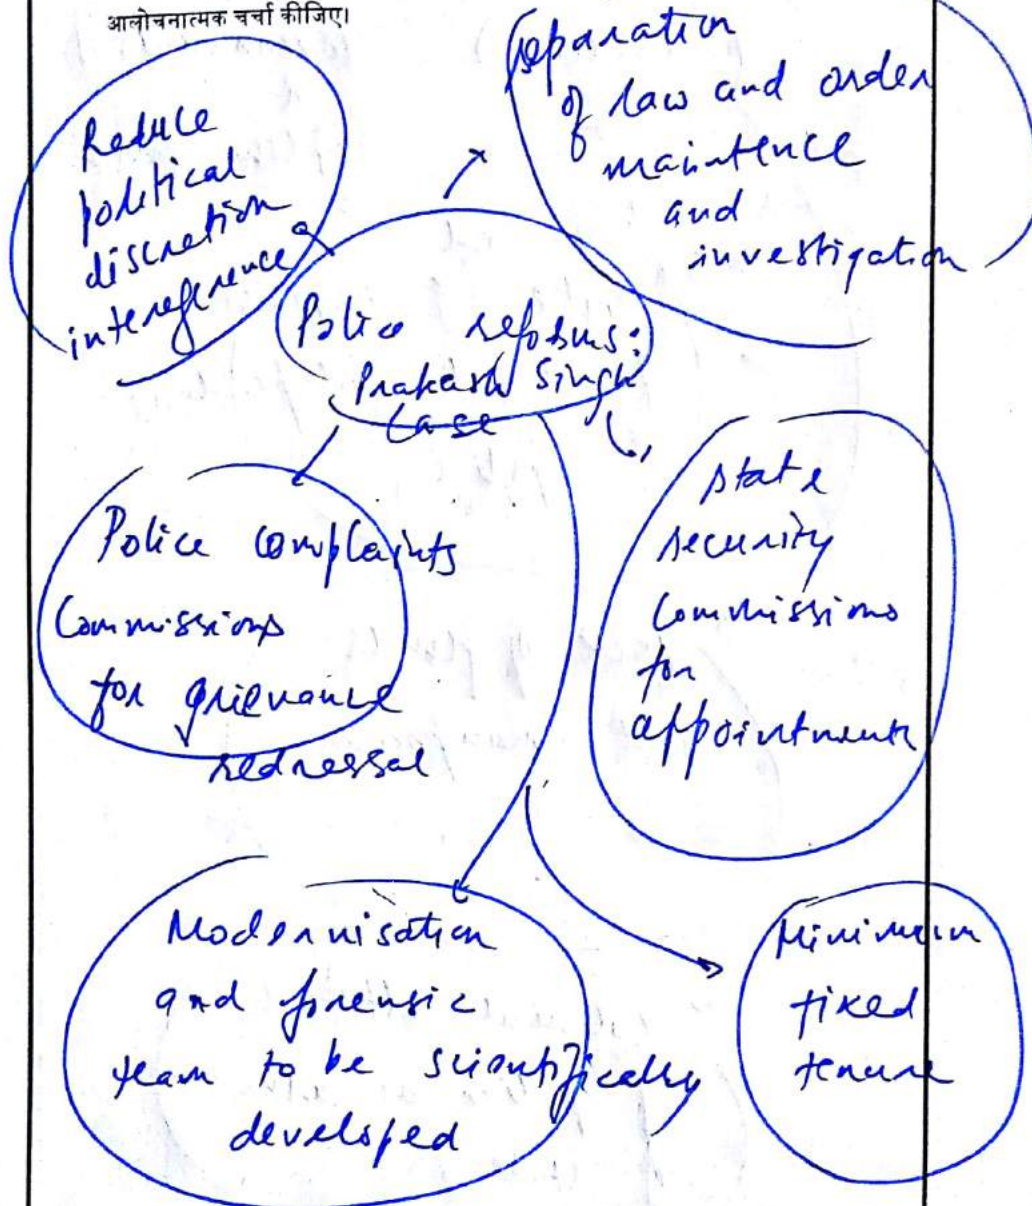 आलोचनात्मक चर्चा कीजिए।
Reduce
political
discretion
intereference
Separation
of law and order
maintence
and
investigation
Police reforms:
Prakash Singh
Case
Police complaints
Commissions
for grievance
redressal
state
security
Commissions
for
appointments
Modernisation
and forensic
team to be scientifically
developed
Minimum
fixed
tenure